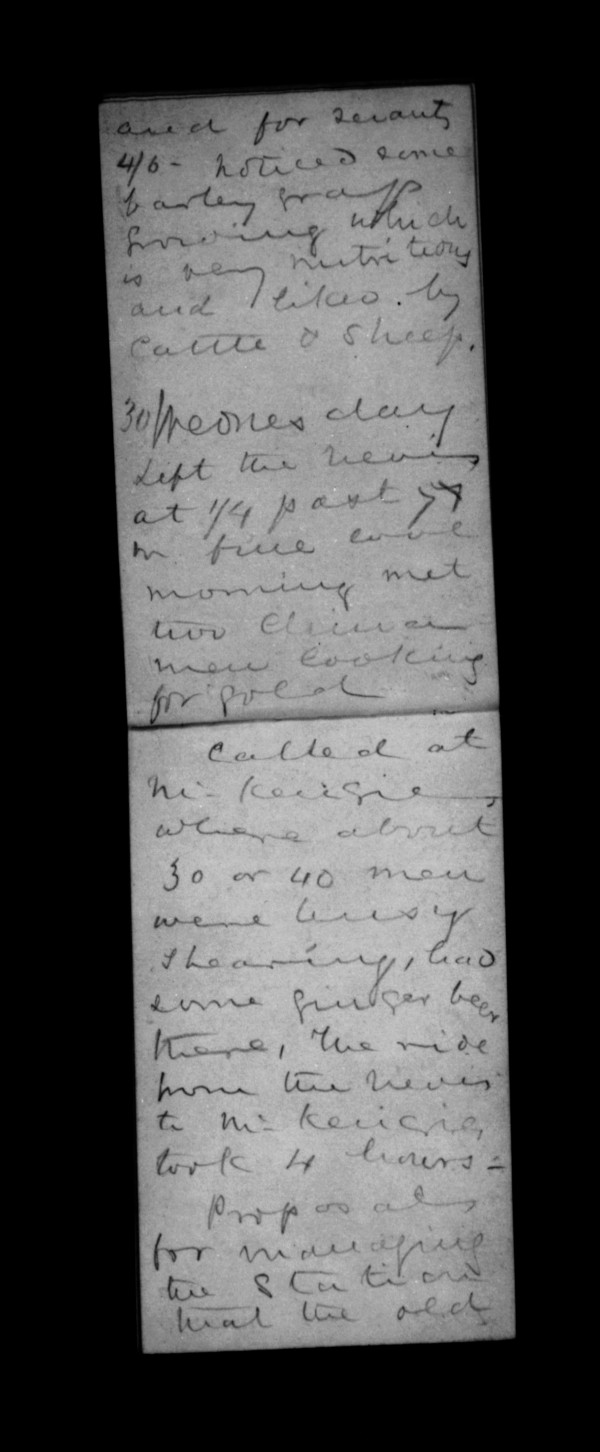 and for servants
4/6 - noticed some
barley grass
growing which
is very nutritious
and liked by
Cattle & Sheep.
30/Wednesday
Left the Nevis
at 1/4 past 7
fine cool
morning met
two China
men looking
for gold
Called at
Mc-Kenzies,
where about
30 or 40 men
were busy
shearing, had
some ginger beer
there, The ride
from the Nevis
to Mc-Kenzies
took 4 hours -
Proposals
for managing
the Station
that the old